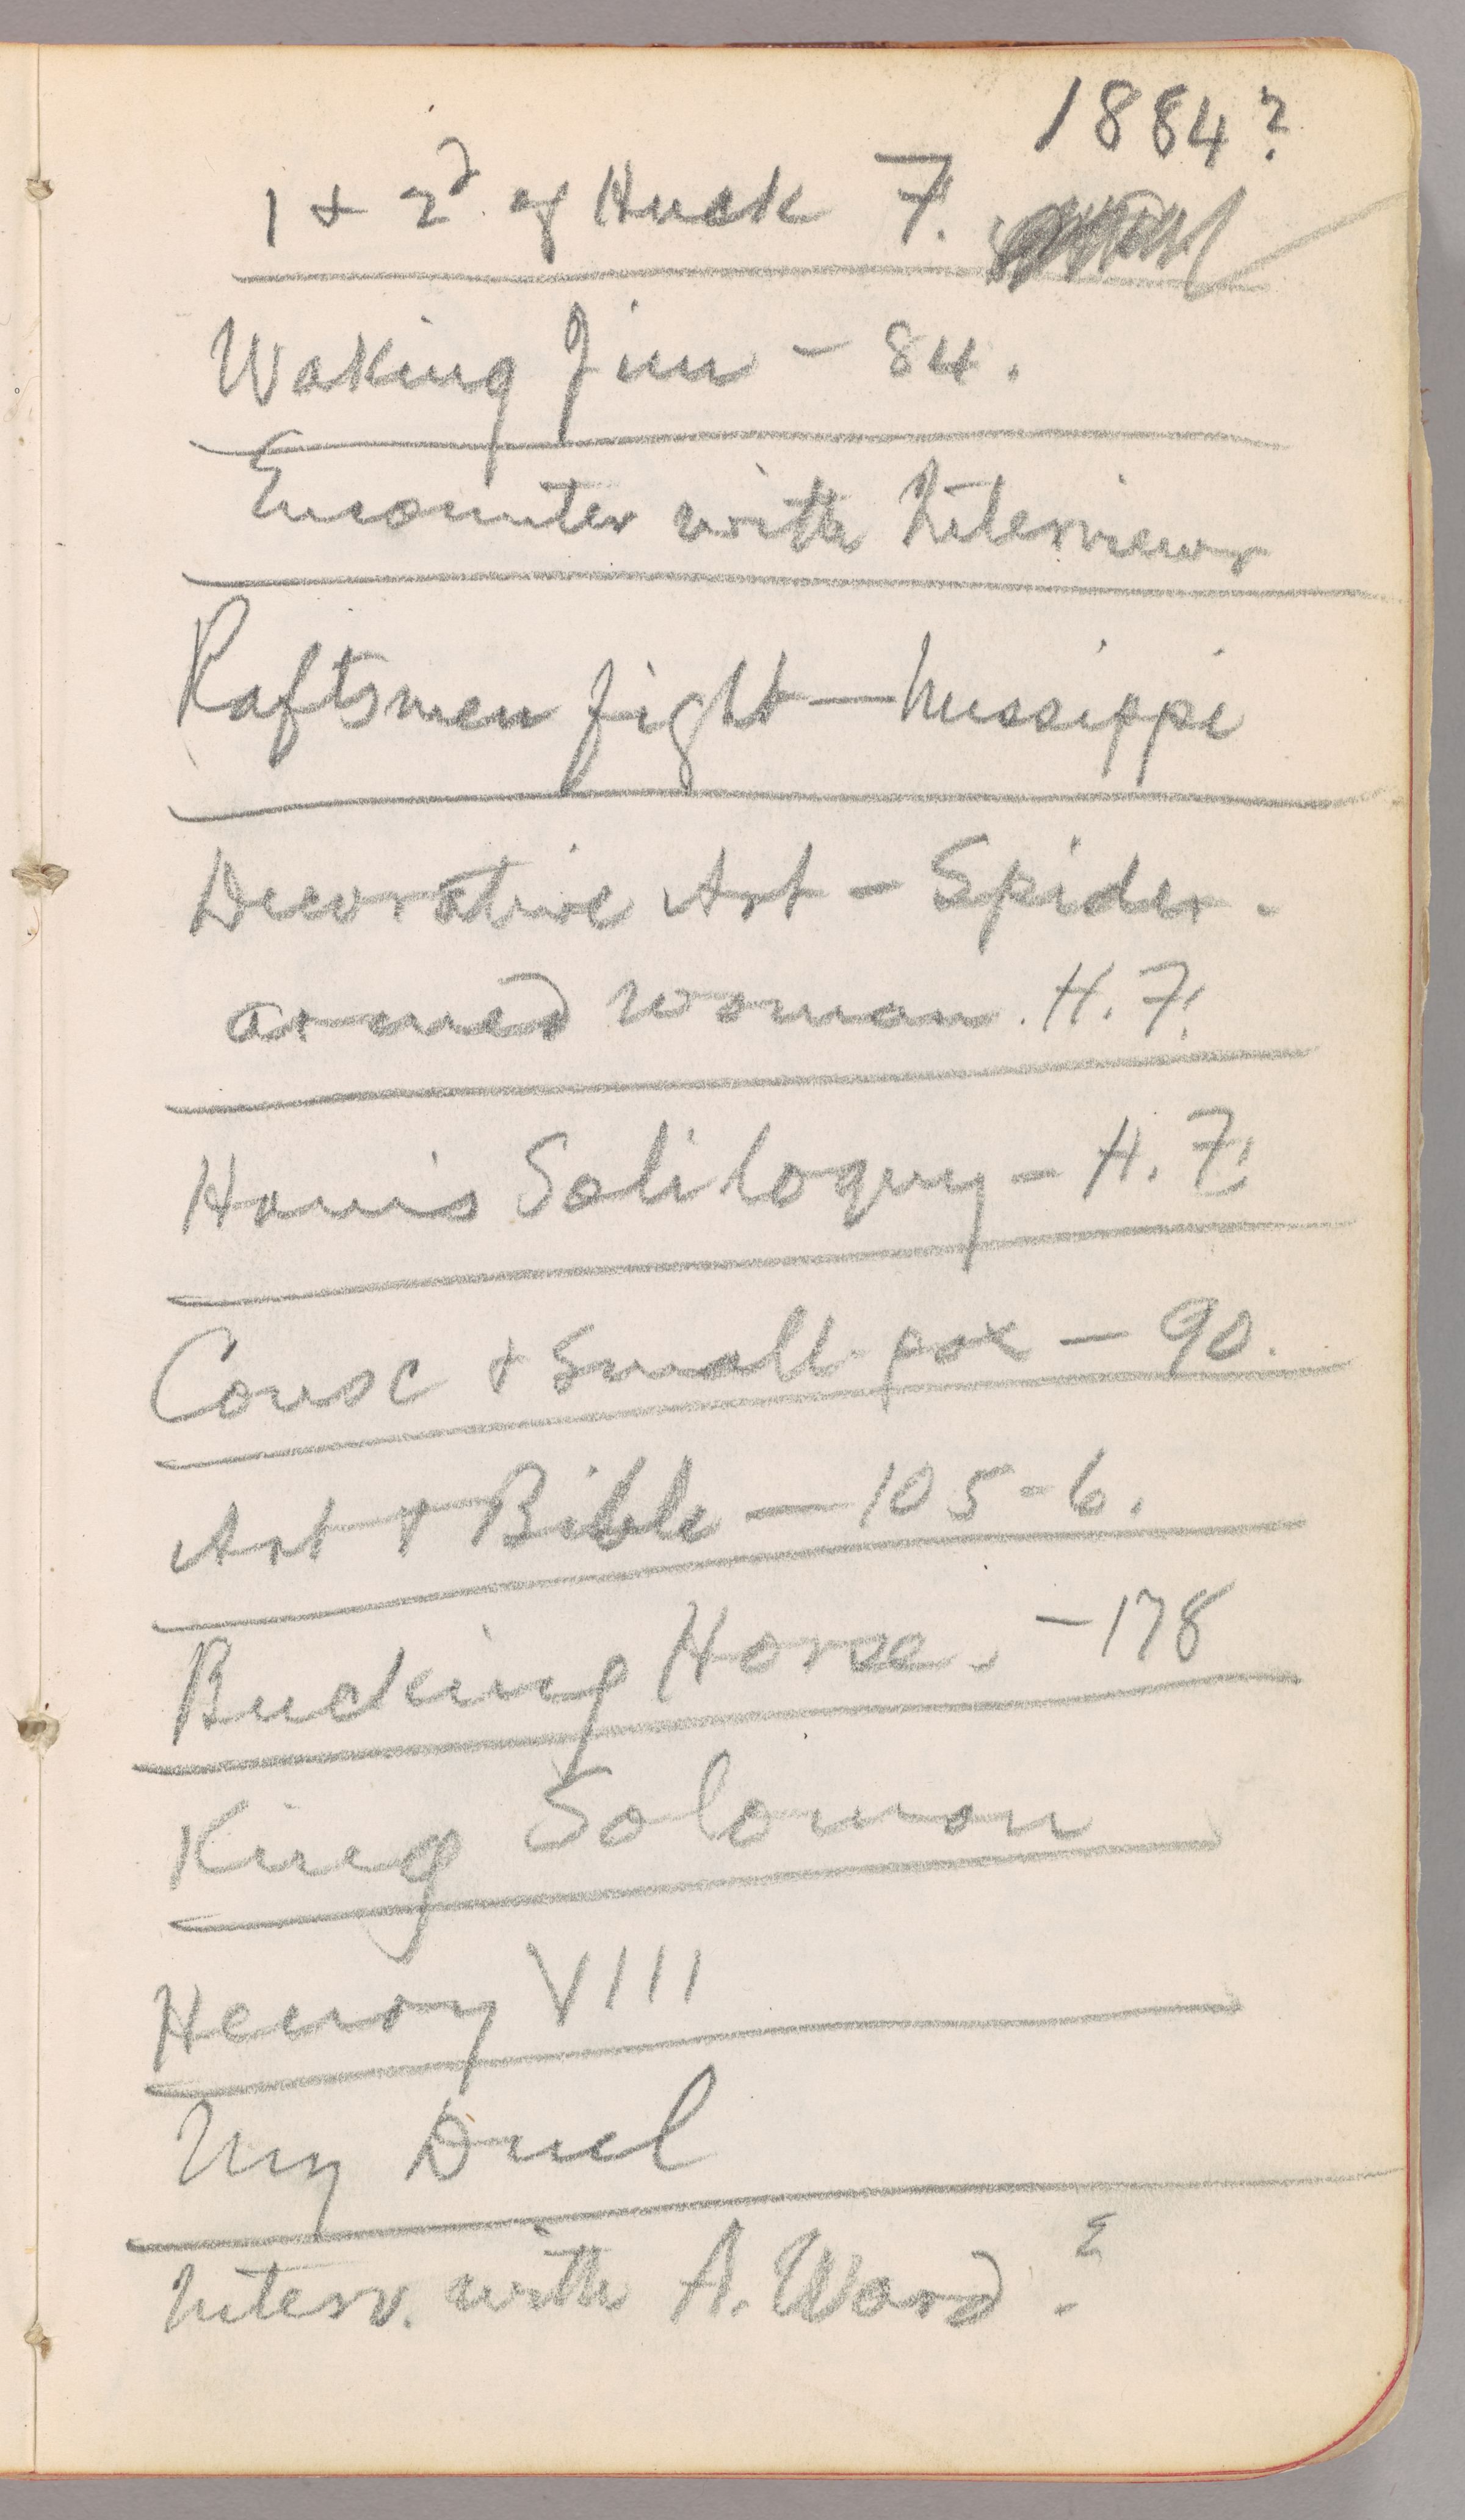 1884?
1 + 2d. of Huck F.
Waking Jim - 84.
Encounter with Interviewr
Raftsmen fight — Missippi
Decorative Art - Spider-
armed woman. H. F.
Ham's Soliloquy - H. F.
Consc + Small-pox — 90.
Art + Bible — 105-6.
Bucking Horse. - 178
King Solomon
Henry VIII
My Duel
Interv. with A. Ward. ?